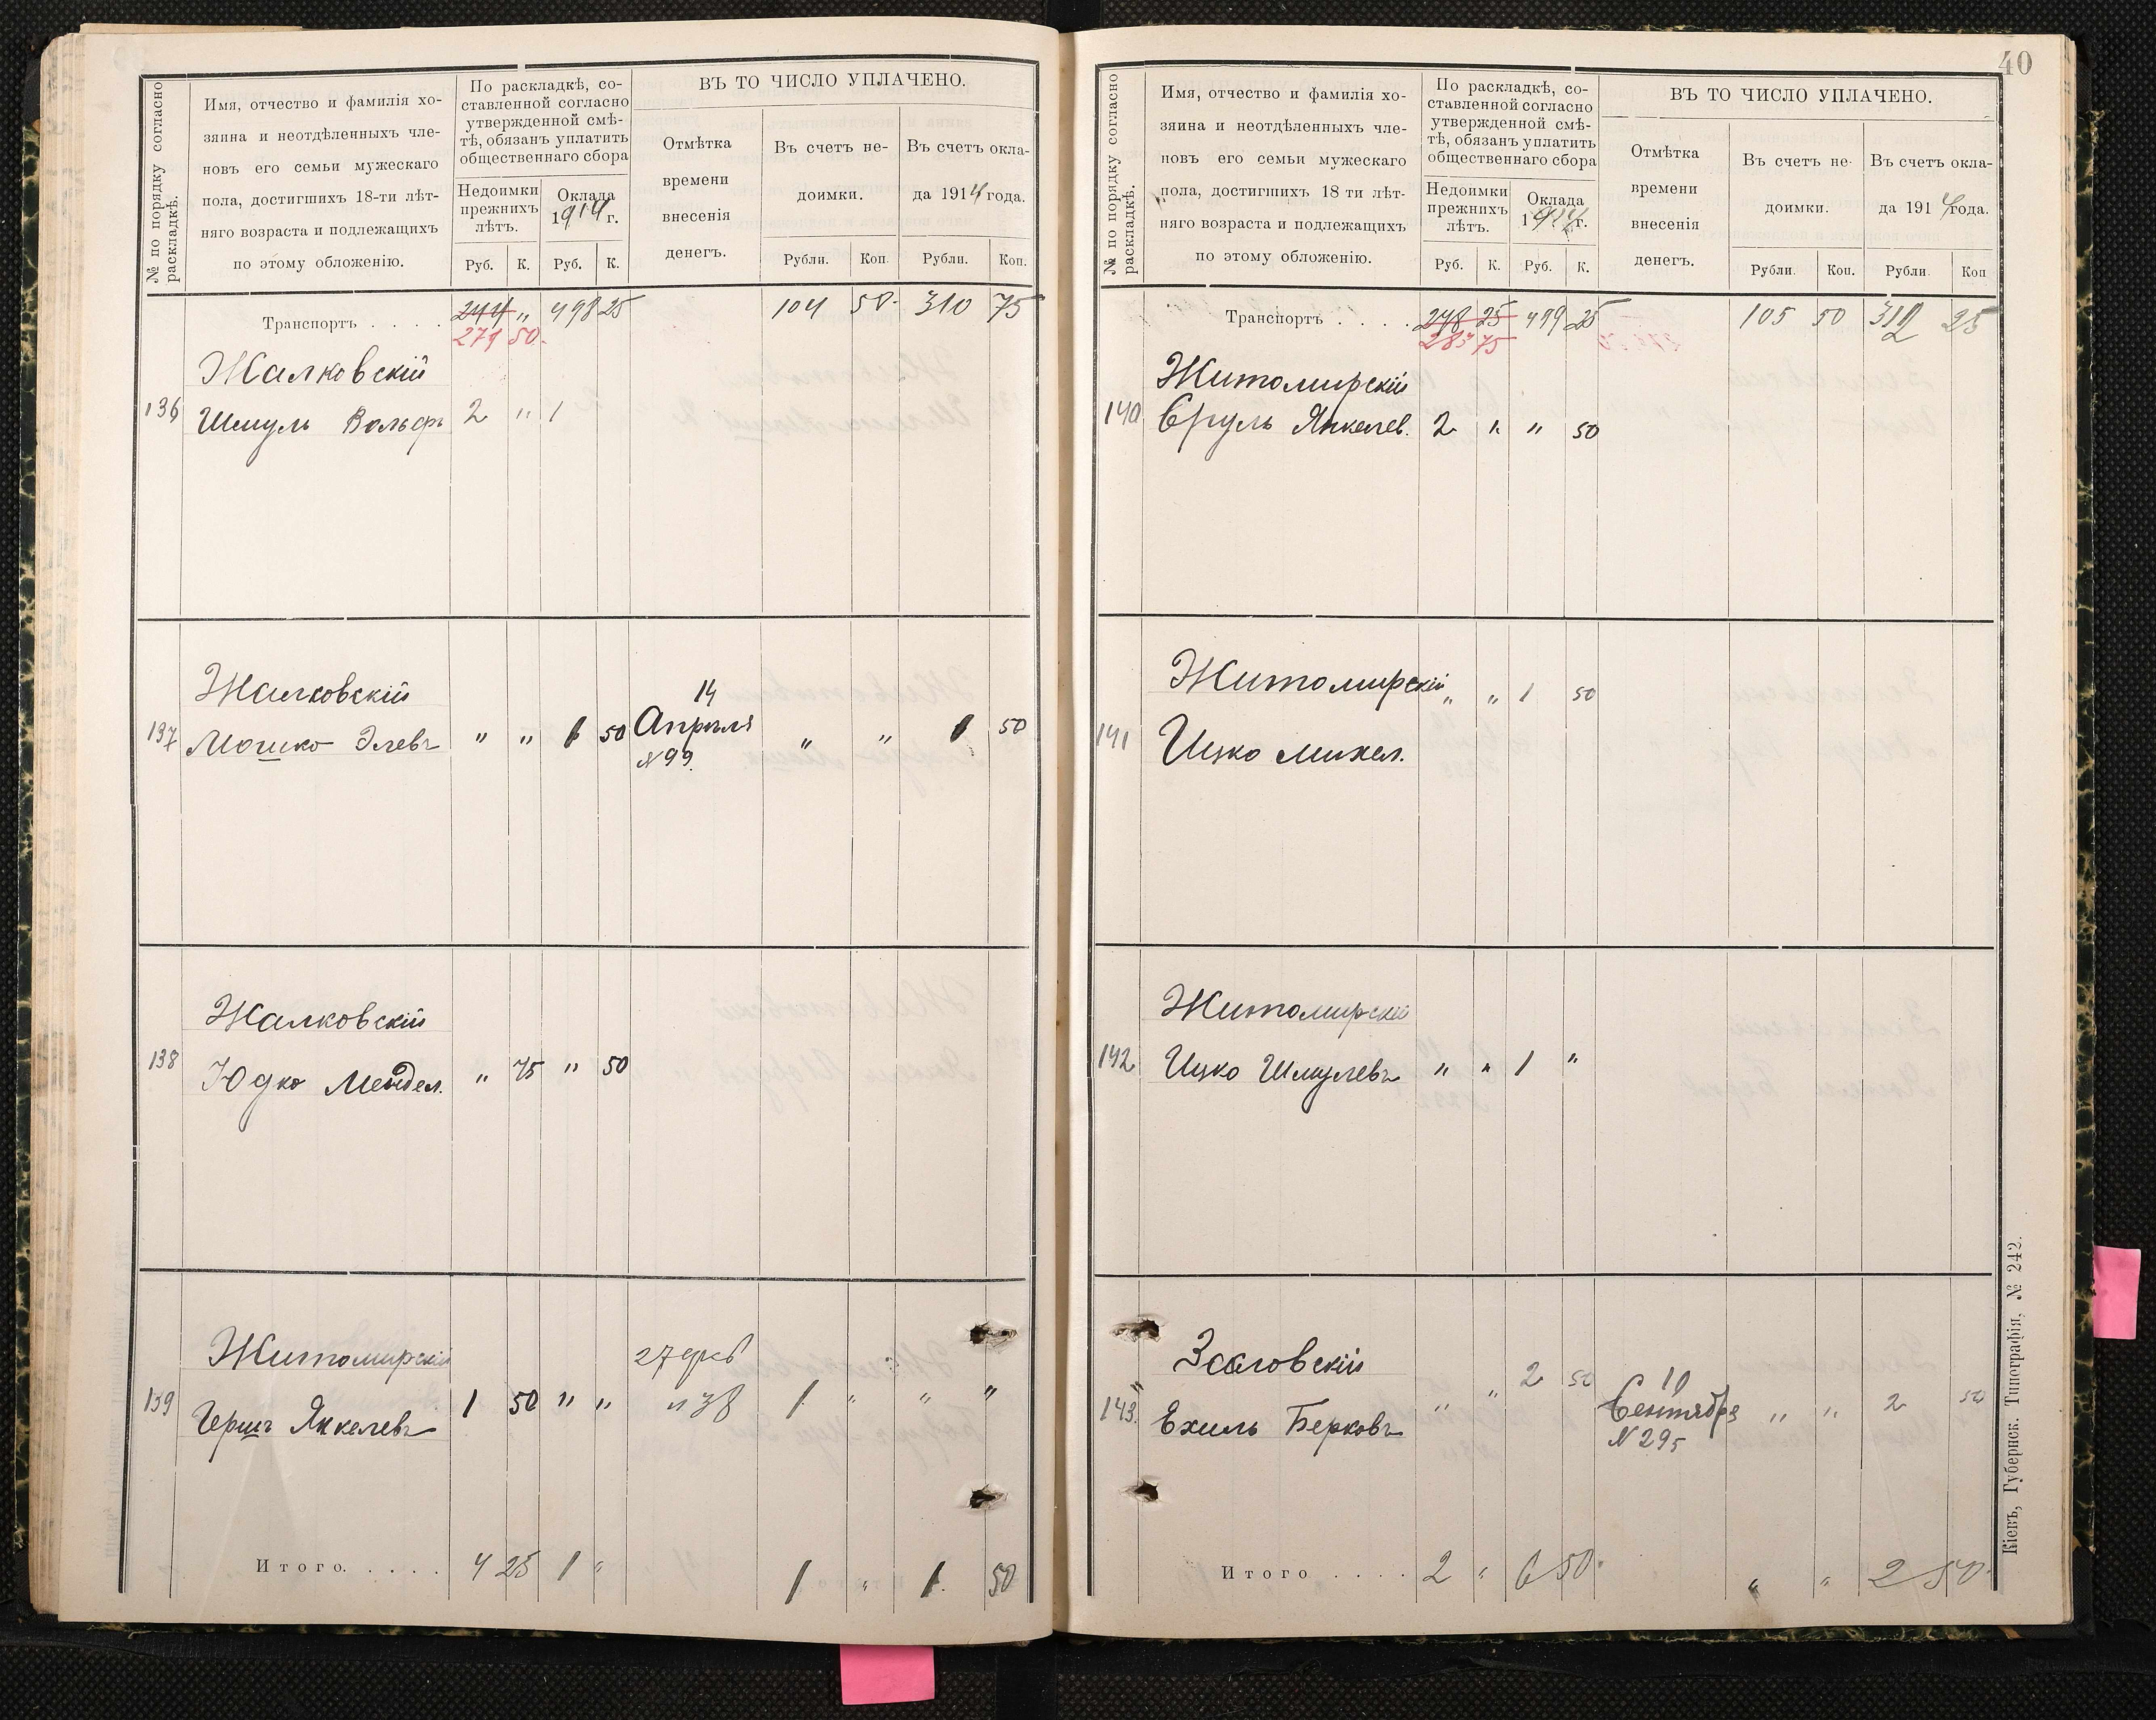 № по порядку согласно
раскладкѣ.
Имя, отчество и фамилія хо-
зяина и неотдѣленныхъ чле-
новъ его семьи мужескаго
пола, достигшихъ 18-ти лѣт-
няго возраста и подлежащихъ
по этому обложенію.
По раскладкѣ, со-
ставленной согласно
утвержденной смѣ-
тѣ, обязанъ уплатить
общественнаго сбора
Недоимки
прежнихъ
лѣтъ.
Оклада
1914 г.
Руб. К. Руб. К.
ВЪ ТО ЧИСЛО УПЛАЧЕНО.
Отмѣтка
времени
внесенія
денегъ.
Въ счетъ не-
доимки.
Въ счетъ окла-
да 1914 года.
Рубли. Коп. Рубли. Коп.
Транспортъ . . . . 244 " 498 25 104 50 310 75
279 50
Жалковскій
136 Шмуль Вольфъ 2 " 1
Жалковскій
14
137 Мошко Элевъ " " 1 50 Апрѣля " " 1 50
N 99
Жалковскій
138 Юдко Мендел. " 75 " 50
Житомирскій
27 фев
139 Гершъ Янкелевъ 1 50 " " N 38 1 " " "
Итого. . . . . 4 25 1 " 1 " 1 50
40
№ по порядку согласно
раскладкѣ.
Имя, отчество и фамилія хо-
зяина и неотдѣленныхъ чле-
новъ его семьи мужескаго
пола, достигшихъ 18 ти лѣт-
няго возраста и подлежащихъ
по этому обложенію.
По раскладкѣ, со-
ставленной согласно
утвержденной смѣ-
тѣ, обязанъ уплатить
общественнаго сбора
Недоимки
прежнихъ
лѣтъ.
Оклада
1914 г.
Руб. К. Руб. К.
ВЪ ТО ЧИСЛО УПЛАЧЕНО.
Отмѣтка
времени
внесенія
денегъ.
Въ счетъ не-
доимки.
Въ счетъ окла-
да 1914 года.
Рубли. Коп. Рубли. Коп
Транспортъ . . . . 248 25 499 25 105 50 312 25
283 75
Житомирскій
140 Сруль Янкелев. 2 " " 50
Житомирскій " " 1 50
141 Ицко Михел.
Житомирскій
142 Ицко Шмулевъ " " 1 "
Заговскій
" " 2 50 10
143 Ехиль Берковъ Сентября " " 2 50
N 295
Итого . . . . 2 " 6 50 " " 2 50
Кіевъ, Губернск. Типографія, № 242.